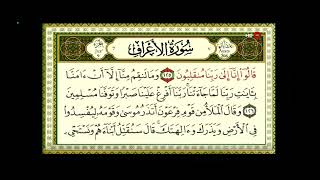 سُورَةُ الْأَعْرَافِ
قَالُوٓا۟ إِنَّآ إِلَىٰ رَبِّنَا مُنقَلِبُونَ ١٢٥ وَمَا تَنقِمُ مِنَّآ إِلَّآ أَنْ ءَامَنَّا
بِـَٔايَـٰتِ رَبِّنَا لَمَّا جَآءَتْنَا رَبَّنَآ أَفْرِغْ عَلَيْنَا صَبْرًا وَتَوَفَّنَا مُسْلِمِينَ
١٢٦ وَقَالَ ٱلْمَلَأُ مِن قَوْمِ فِرْعَوْنَ أَتَذَرُ مُوسَىٰ وَقَوْمَهُۥ لِيُفْسِدُوا۟
فِى ٱلْأَرْضِ وَيَذَرَكَ وَءَالِهَتَكَ قَالَ سَنُقَتِّلُ أَبْنَآءَهُمْ وَنَسْتَحْىِۦ